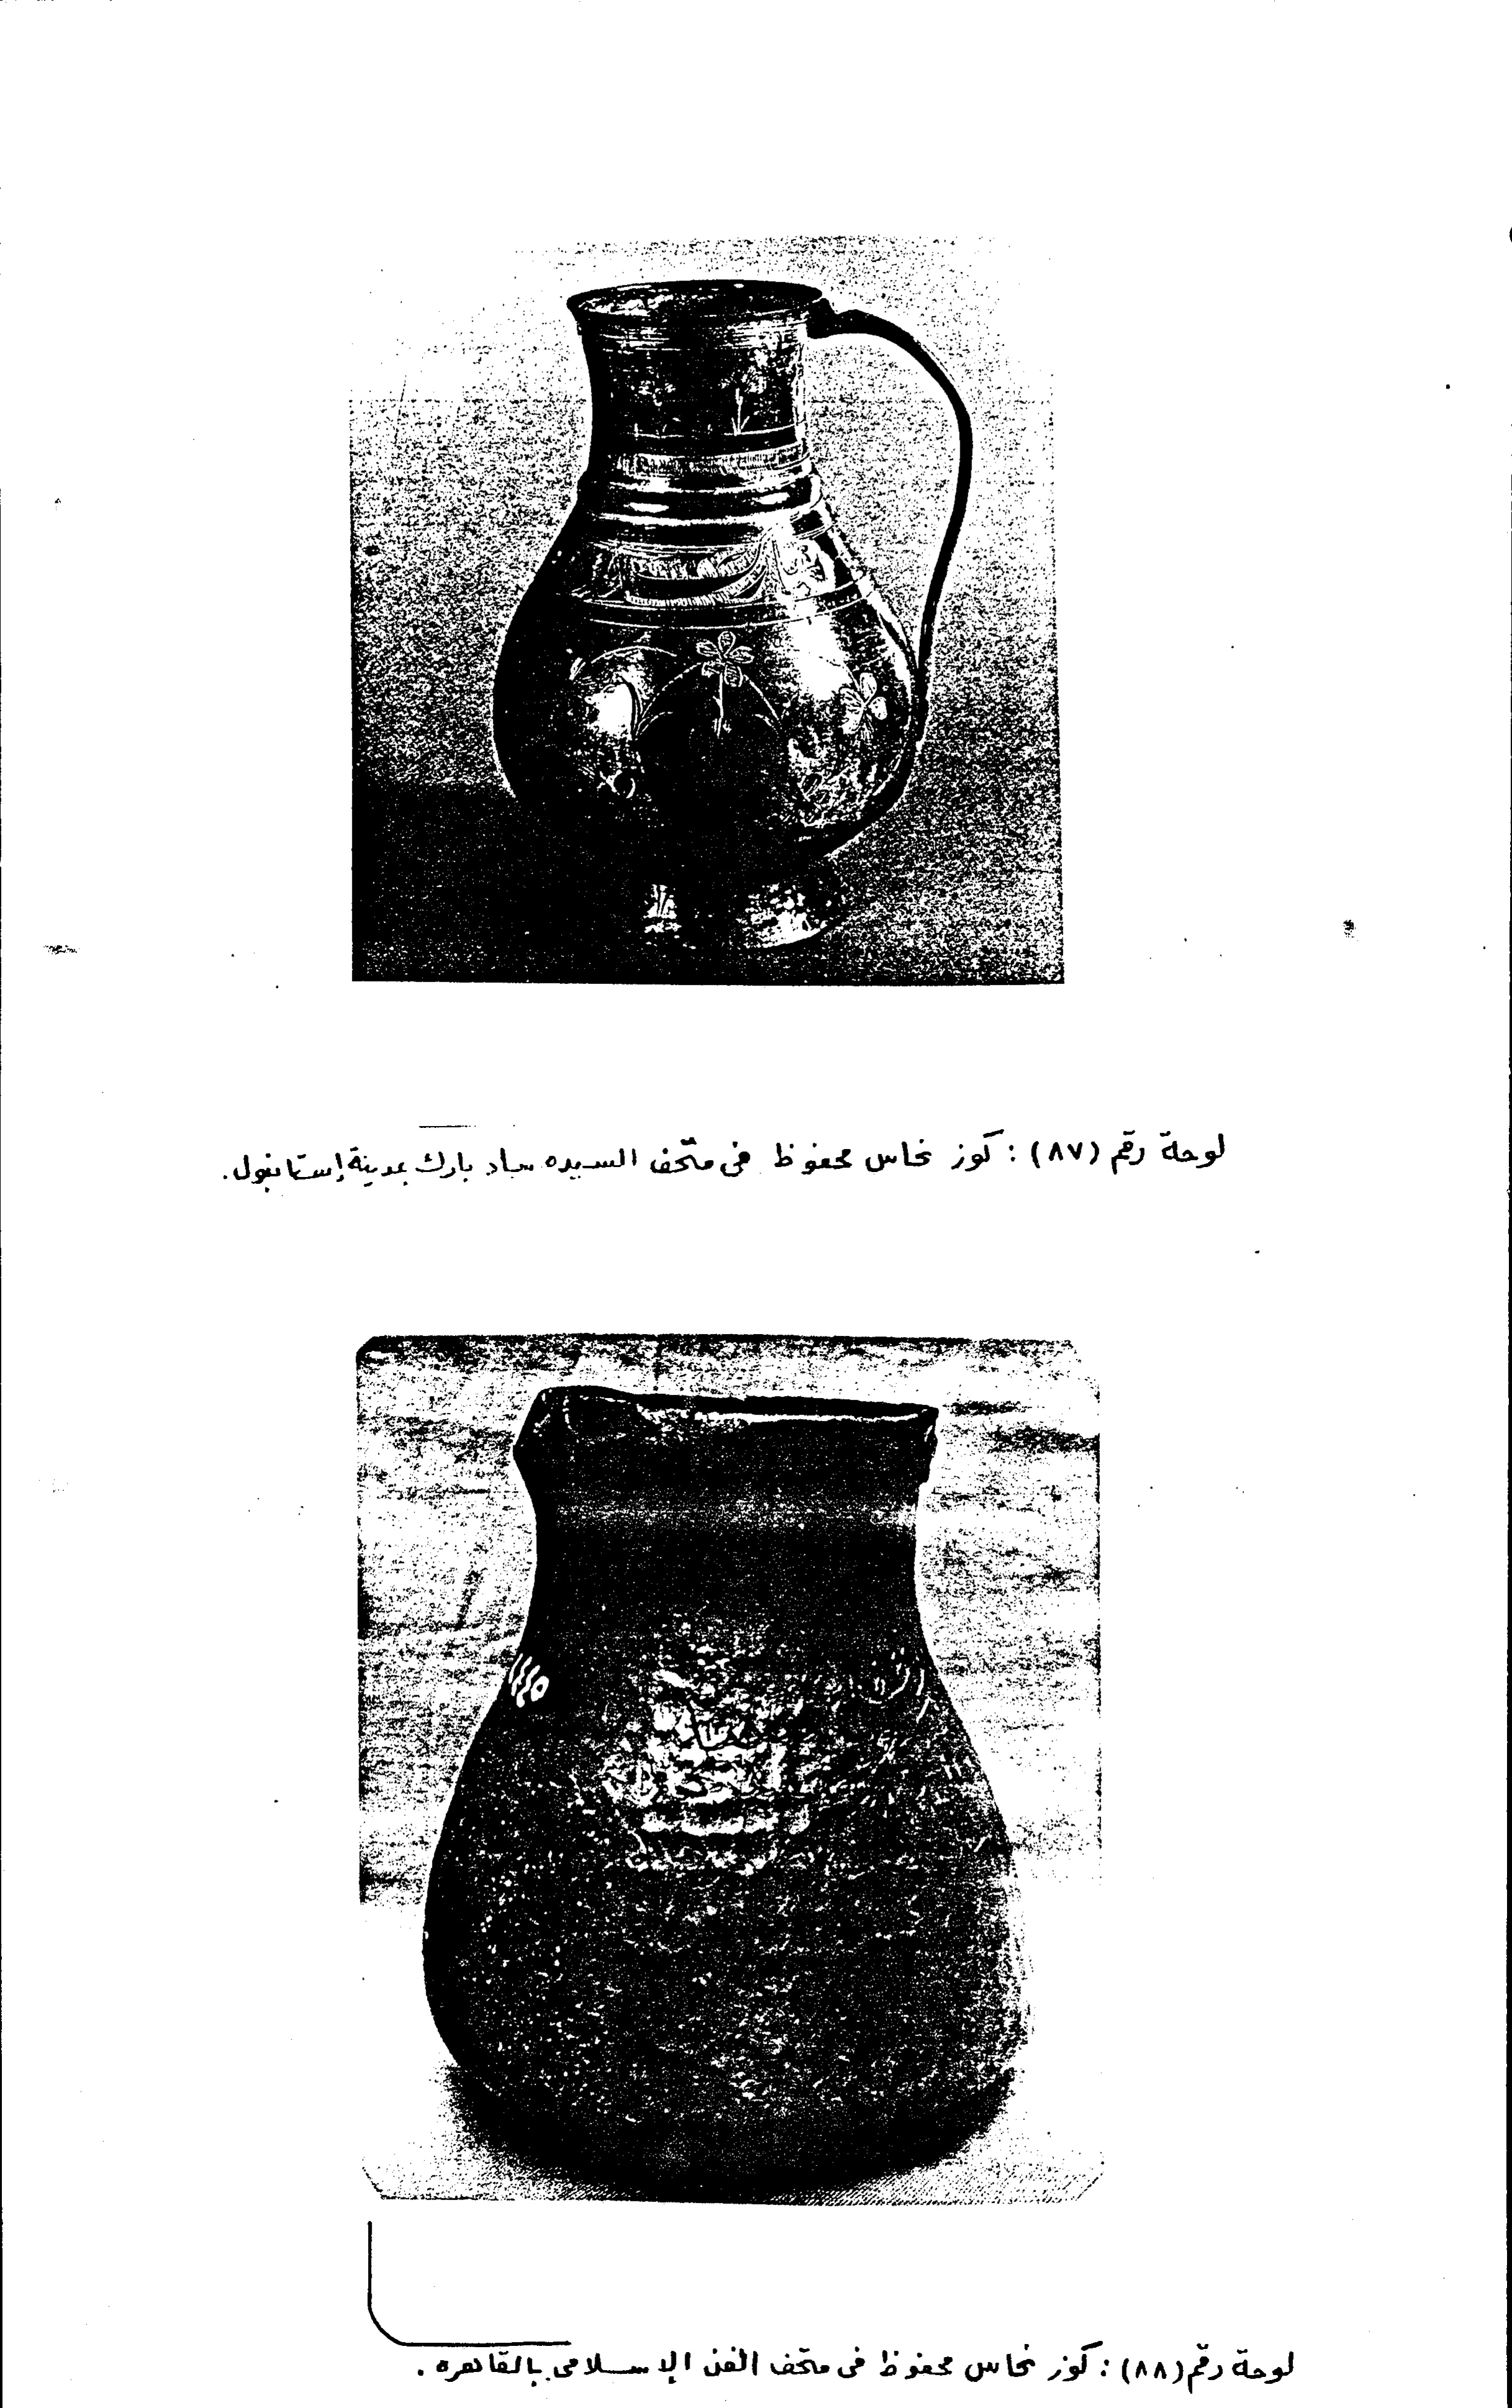 لوحة رقم (٨٧) : كوز نحاس محفوظ فى متحف السيده بارك بمدينة إستانبول.
لوحة رقم (٨٨) : كوز نحاس محفوظ فى متحف الفن الإسلامى بالقاهره .